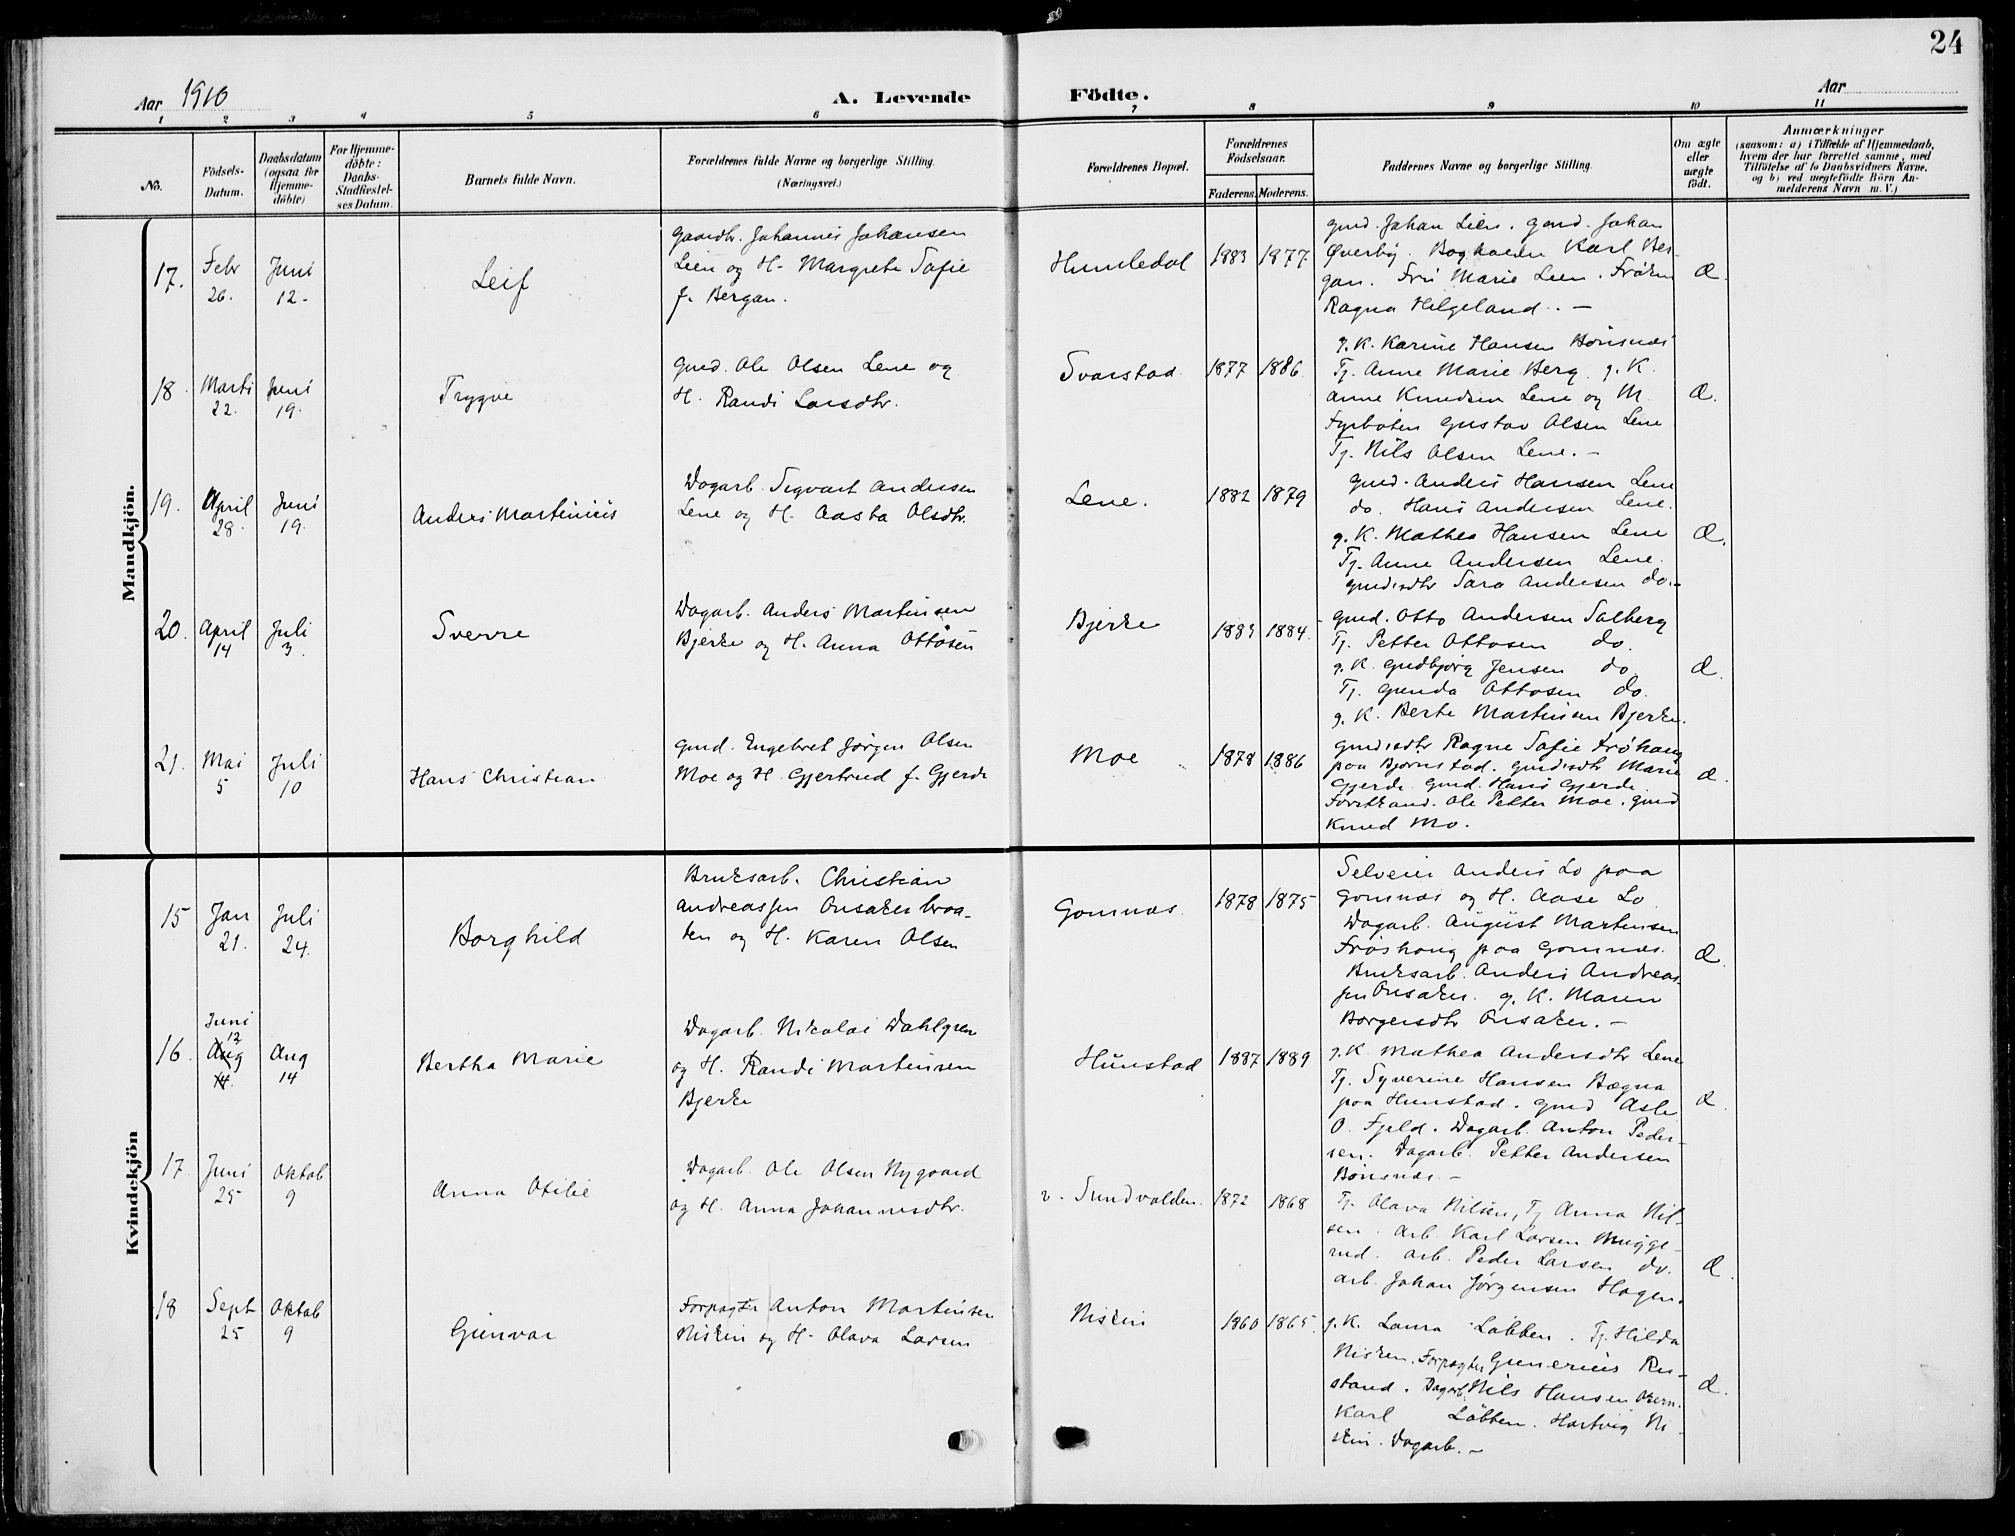 24
Aar 1910
A. Levende
Födte.
Aar
1 2 3 4 5 6 7 8 9 10 11
No.
Födsels-
Datum.
Daabsdatum
(ogsaa for
Hjemme-
döbte)
For Hjemme-
döbte:
Daabs-
Stadfæstel-
ses Datum.
Barnets fulde Navn.
Forældrenes fulde Navne og borgerlige Stilling.
(Næringsvei.)
Forældrenes Bopæl.
Forældrenes
Födselsaar.
Faderens. Moderens.
Faddernes Navne og borgerlige Stilling.
Om ægte
eller
uægte
født.
Anmærkninger
(saasom: a) i Tilfælde af Hjemmedaab,
hvem der har forrettet samme, med
Tilföielse af to Daabsvidners Navne,
og b) ved uægtefödte Börn An-
melderens Navn m. V.)
Mandkjön.
17.
Febr
26.
Juni
12.
Leif
Gaardbr. Johannes Johansen
Lien og H. Margrete Sofie
f. Bergan.
Humledal
1883 1877
Gmd. Johan Lien. Gmd. Johan
Øverby. Bogholder Karl Ber-
gan. Fru Marie Lien. Frøken
Ragna Helgeland. —
Æ.
18.
Marts
22.
Juni
19.
Trygve
Gmd. Ole Olsen Lene og
H. Randi Larsdtr.
Svarstad
1877 1886.
g. K. Karine Hansen Bønsnæs
Tj. Anne Marie Berg. g. K.
Anne Knudsen Lene og M.
Fyrbøter Gustav Olsen Lene
Tj. Nils Olsen Lene. —
Æ.
19.
April
28.
Juni
19.
Anders Martinius
Dagarb. Sigvart Andersen
Lene og H. Aasta Olsdtr.
Lene.
1882 1879
Gmd. Anders Hansen Lene
do. Hans Andersen Lene.
g. K. Mathea Hansen Lene
Tj. Anne Andersen Lene.
Gmdsdtr Sara Andersen do. —
Æ.
20.
April
14
Juli
3.
Sverre
Dagarb. Anders Martinsen
Bjerke og H. Anna Ottosen
Bjerke
1884.
Gmd. Otto Andersen Solberg
Tj. Petter Ottosen do.
g. K. Gudbjørg Jensen do
Tj. Gunda Ottosen do.
g. K. Berte Martinsen Bjerke.
Æ.
21.
Mai
5
Juli
10
Hans Christian
Gmd. Engebret Jørgen Olsen
Moe og H. Gjertrud f. Gjerde
Moe
1878 1886
Gmdsdtr Ragne Sofie Frøhaug
paa Bjørnstad. Gmdsdtr Marie
Gjerde. Gmd. Hans Gjerde
Forstkand. Ole Petter Moe. Gmd
Knud Mo.
Æ.
Kvindekjön
15
Jan
21.
Juli
24.
Borghild
Bruksarb. Christian
Andreassen Onsakerbraa-
ten og H. Karen Olsen
Gomnæs.
1878 1875
Selveier Anders Lo paa
Gomnæs og H. Aase Lo
Dagarb. August Martinsen
Frøshaug paa Gomnæs.
Bruksarb. Anders Andreas-
sen Onsaker. g. K. Maren
Borgersdtr Onsaker. —
Æ.
16.
Juni
12
Aug
14.
Aug
14
Bertha Marie
Dagarb. Nicolai Dahlgren
og H. Randi Martinsen
Bjerke
Hunstad
1887 1889
g. K. Mathea Andersdtr Lene
Tj. Syverine Hansen Bægna
paa Hunstad. Gmd Asle
O. Fjeld. Dagarb. Anton Peder-
sen. Dagarb. Petter Andersen
Bønsnæs. —
Æ.
17.
Juni
25
Oktob
9
Anna Otilie
Dagarb. Ole Olsen Nygaard
og H. Anna Johannesdtr.
v. Sundvolden.
1872 1868
Tj. Olava Nilsen, Tj Anna Nil-
sen. Arb. Karl Larsen Mugge-
rud. Arb. Peder Larsen do.
Arb. Johan Jørgensen Hagen.
Æ.
18
Sept
25
Oktob
9
Gunvor
Forpagter Anton Martinsen
Nisken og H. Olava Larsen
Nisken
1860 1865.
g. K. Laura Løbben. Tj. Hilda
Nisken. Forpagter Gunerius Ru-
stand. Dagarb. Nils Hansen
Karl Løbben. Hartvig Ni-
sken. Dagarb. —
Æ.